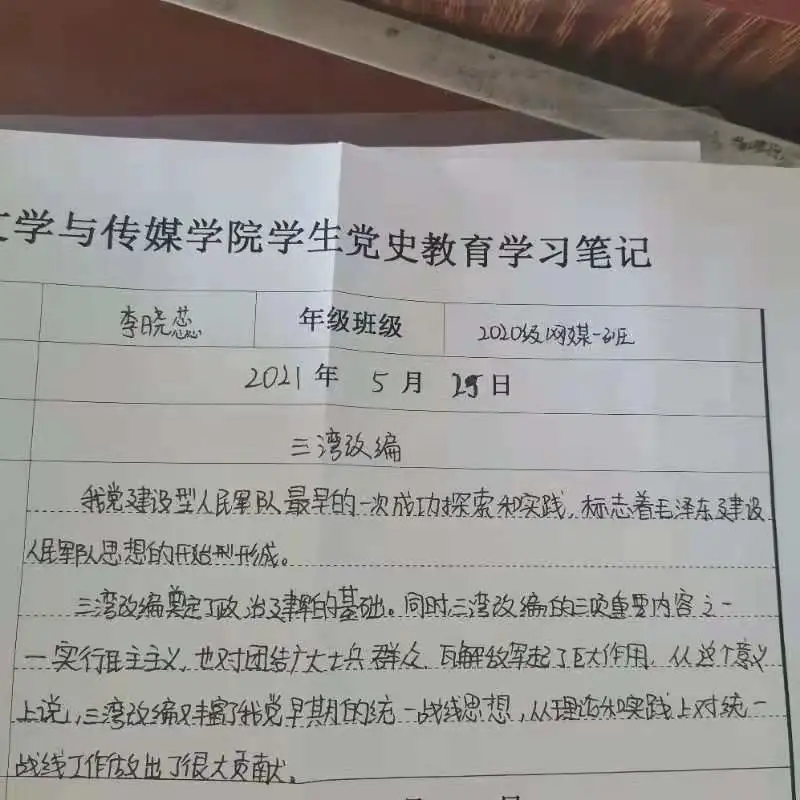 文学与传媒学院学生党史教育学习笔记
李晓蕊 年级班级 2020级网媒一班
2021 年 5 月 25 日
三湾改编
我党建设型人民军队最早的一次成功探索和实践,标志着毛泽东建设
人民军队思想的开始型形成。
三湾改编奠定了政治建军的基础。同时三湾改编的三项重要内容之一
一实行民主主义,也对团结广大士兵群众,瓦解敌军起了巨大作用,从这个意义
上说,三湾改编又丰富了我党早期的统一战线思想,从理论和实践上对统一
战线工作做出了很大贡献。